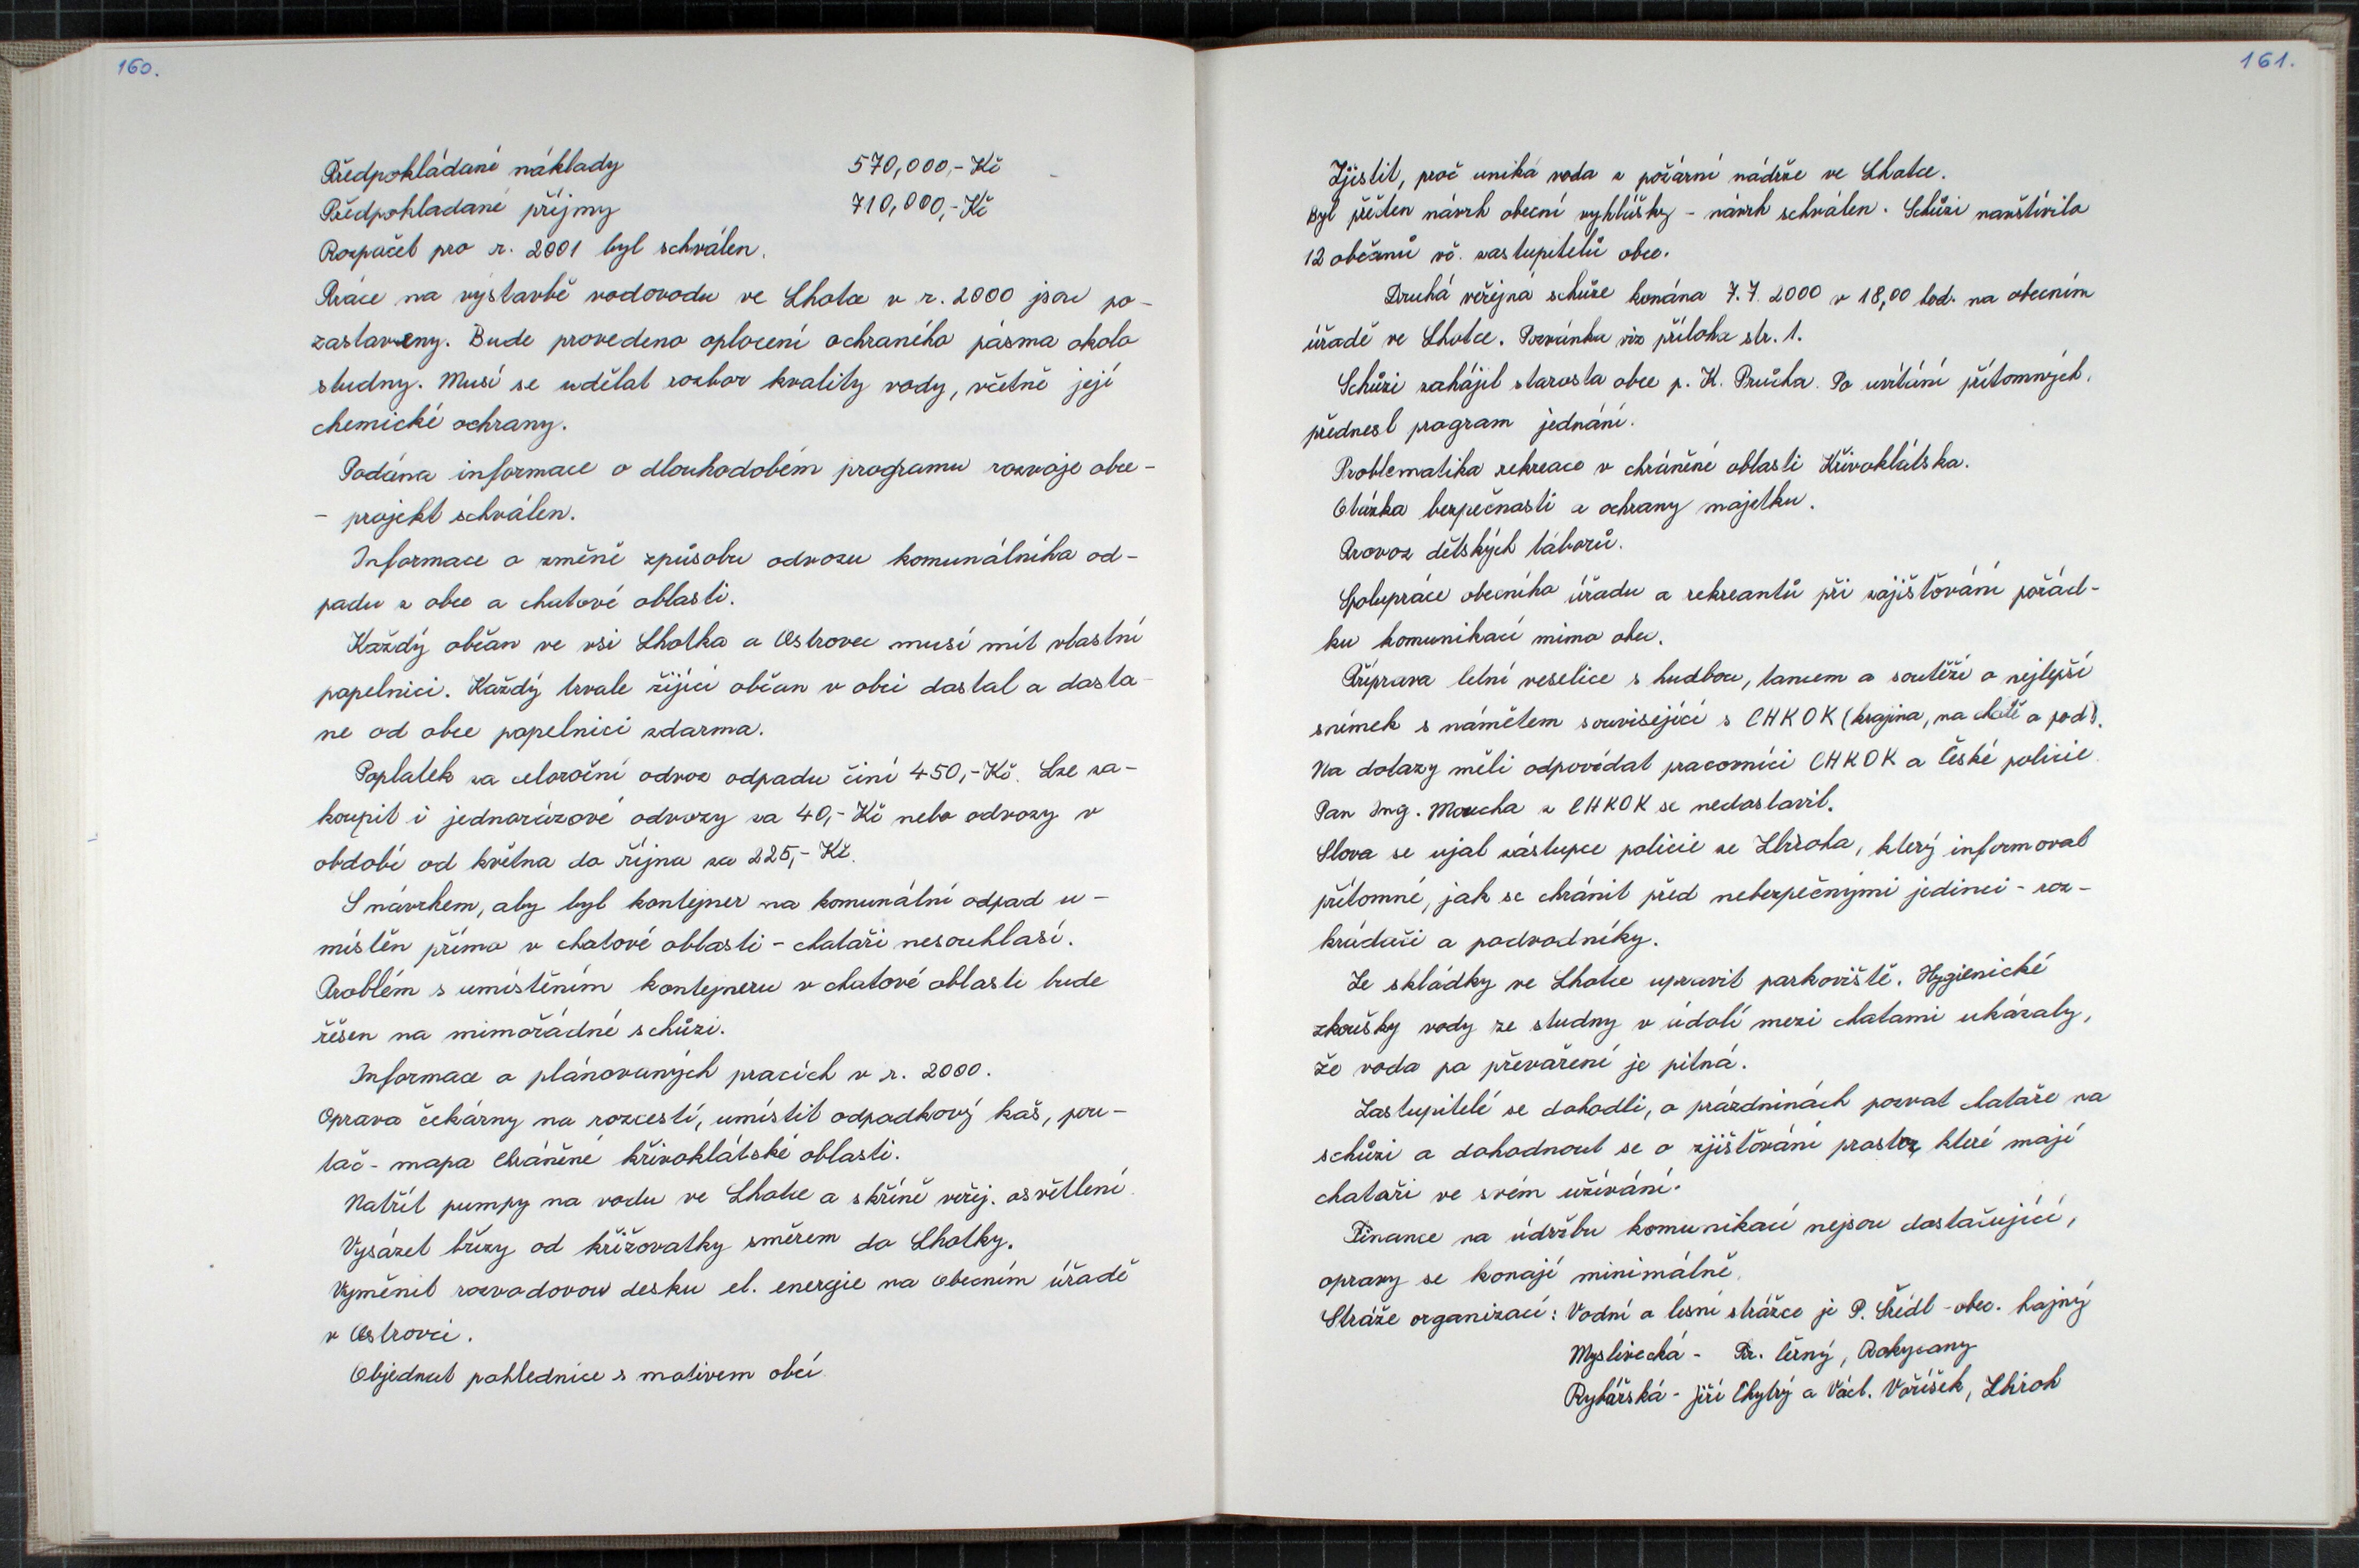 160.
Předpokládané náklady 570,000,- Kč
Předpokladané příjmy 710,000,- Kč
Rozpočet pro r. 2001 byl schválen.
Práce na výstavbě vodovodu ve Lhotce v r. 2000 jsou po-
zastaveny. Bude provedeno oplocení ochraného pásma okolo
studny. Musí se udělat rozbor kvality vody, včetně její
chemické ochrany.
Podána informace o dlouhodobém programu rozvoje obce -
- projekt schválen.
Informace o změně způsobu odvozu komunálního od-
padu z obce a chatové oblasti.
Každý občan ve vsi Lhotka a Ostrovec musí mít vlastní
popelnici. Každý trvale žijící občan v obci dostal a dosta-
ne od obce popelnici zdarma.
Poplatek za celoroční odvoz odpadu činí 450,- Kč. Lze za-
koupit i jednorázové odvozy za 40,- Kč nebo odvozy v
období od května do října za 225,- Kč.
S návrhem, aby byl kontejner na komunální odpad u-
místěn přímo v chatové oblasti - chataři nesouhlasí.
Problém s umístěním kontejneru v chatové oblasti bude
řěšen na mimořádné schůzi.
Informace o plánovaných pracích v r. 2000.
Oprava čekárny na rozcestí, umístit odpadkový koš, pou-
tač - mapa Chráněné křivoklátské oblasti.
Natřít pumpy na vodu ve Lhotce a skříně veřej. osvětlení.
Vysázet břízy od křižovatky směrem do Lhotky.
Vyměnit rozvodovou desku el. energie na Obecním úřadě
v Ostrovci.
Objednat pohlednice s motivem obcí
161.
Zjistit, proč uniká voda z požární nádrže ve Lhotce.
Byl přečten návrh obecní vyhlášky - návrh schválen. Schůzi navštívilo
12 občanů vč. zastupitelů obce.
Druhá veřejná schůze konána 7.7. 2000 v 18,00 hod. na obecním
úřadě ve Lhotce. Pozvánka viz příloha str. 1.
Schůzi zahájil starosta obce p. K. Průcha. Po uvítání přítomných,
přednesl program jednání.
Problematika rekreace v chráněné oblasti Křivoklátska.
Otázka bezpečnosti a ochrany majetku.
Provoz dětských táborů.
Spolupráce obecního úřadu a rekreantů při zajišťování pořád-
ku komunikací mimo obec.
Příprava letní veselice s hudbou, tancem a soutěží o nejlepší
snímek s námětem související s CHKOK (krajina, na chatě a pod).
Na dotazy měli odpovídat pracovníci CHKOK a České policie.
Pan Ing. Moucha z CHKOK se nedostavil.
Slova se ujal zástupce policie ze Zbiroha, který informoval
přítomné, jak se chránit před nebezpečnými jedinci - roz-
krádači a podvodníky.
Ze skládky ve Lhotce upravit parkoviště. Hygienické
zkoušky vody ze studny v údolí mezi chatami ukázaly,
že voda po převaření je pitná.
Zastupitelé se dohodli, o prázdninách pozvat chataře na
schůzi a dohodnout se o zjišťování prostor, které mají
chataři ve svém užívání.
Finance na údržbu komunikací nejsou dostačující,
opravy se konají minimálně.
Stráže organizací: Vodní a lesní strážce je P. Šrédl - obec. hajný
Myslivecká - Fr. Černý, Rokycany
Rybářská - Jiří Chytrý a Václ. Voříšek, Zbiroh